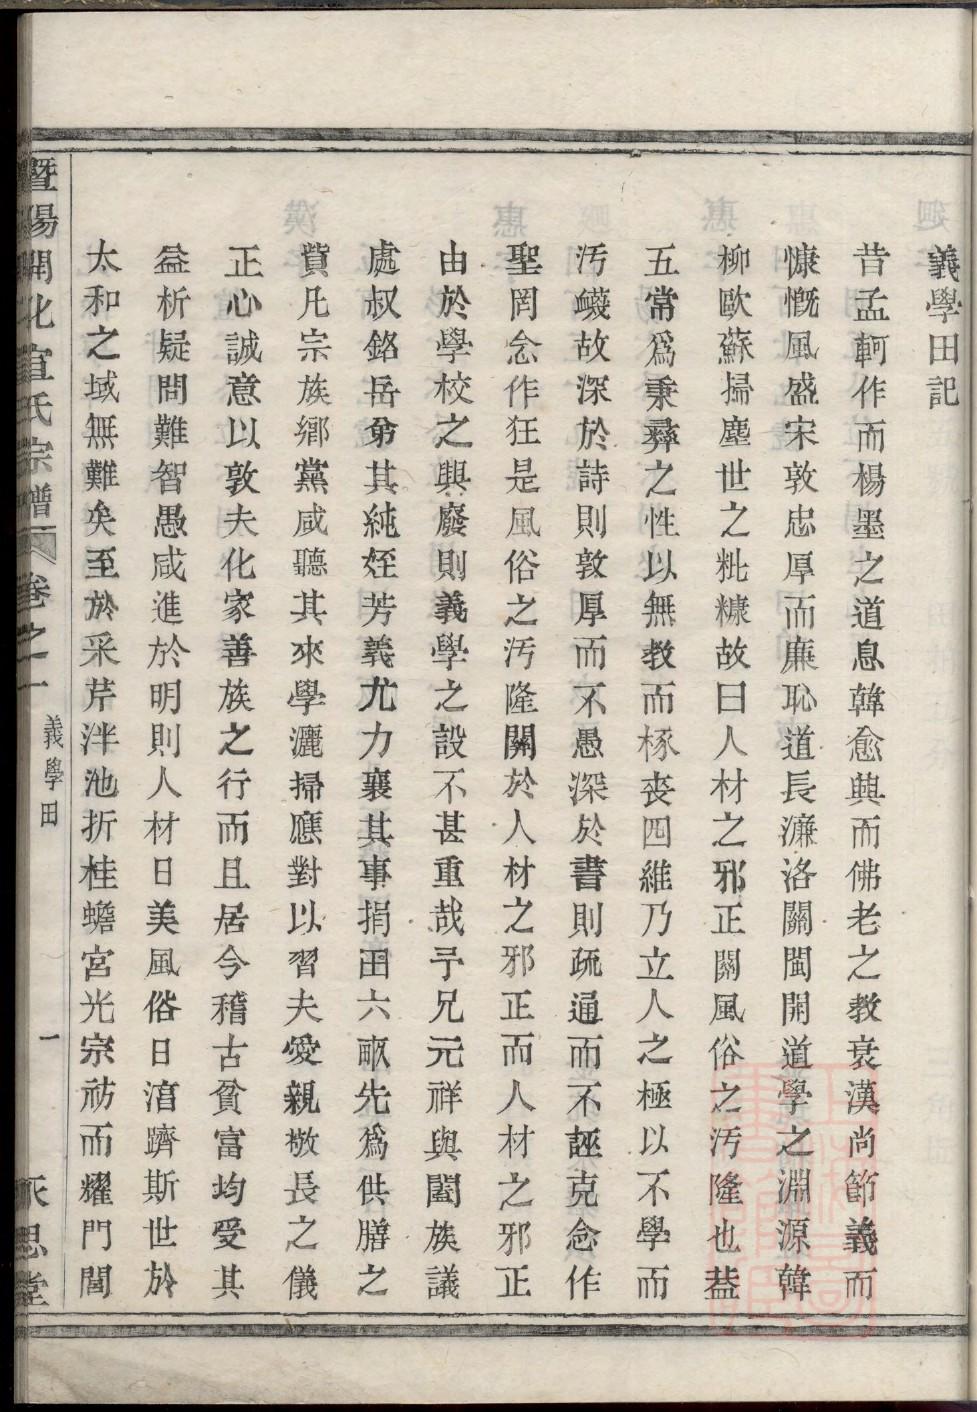 義學田記
昔孟軻作而楊墨之道息韓愈興而佛老之教衰漢尚節義而
慷慨風盛宋敦忠厚而廉恥道長濂洛關閩開道學之淵源韓
柳歐蘇掃塵世之粃糠故曰人材之邪正關風俗之汚隆也葢
五常爲秉彝之性以無教而椓丧四維乃立人之極以不學而
汚衊故深於詩則敦厚而不愚深於書則疏通而不誣克念作
聖罔念作狂是風俗之汚隆關於人材之邪正而人材之邪正
由於學校之興廢則義學之設不甚重哉予兄元祥與闔族議
處叔銘岳弟其純姪芳義尤力襄其事捐田六畝先爲供膳之
貲凡宗族鄉黨咸聽其來學灑掃應對以習夫愛親敬長之儀
正心誠意以敦夫化家善族之行而且居今稽古貧富均受其
益析疑問難智愚咸進於明則人材日美風俗日湻躋斯世於
太和之域無難矣至於采芹泮池折桂蟾宮光宗祊而耀門閭
暨陽開化宣氏宗譜
卷之一
義學田
一
永思堂